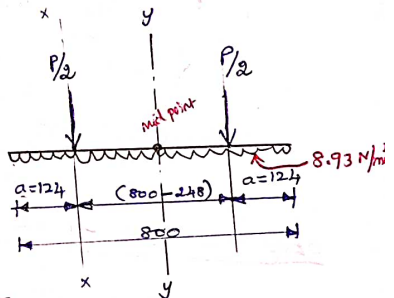 x
y
P/2
P/2
mid point
8.93 N/m
a=124
(800-248)
a=124
800
x
y